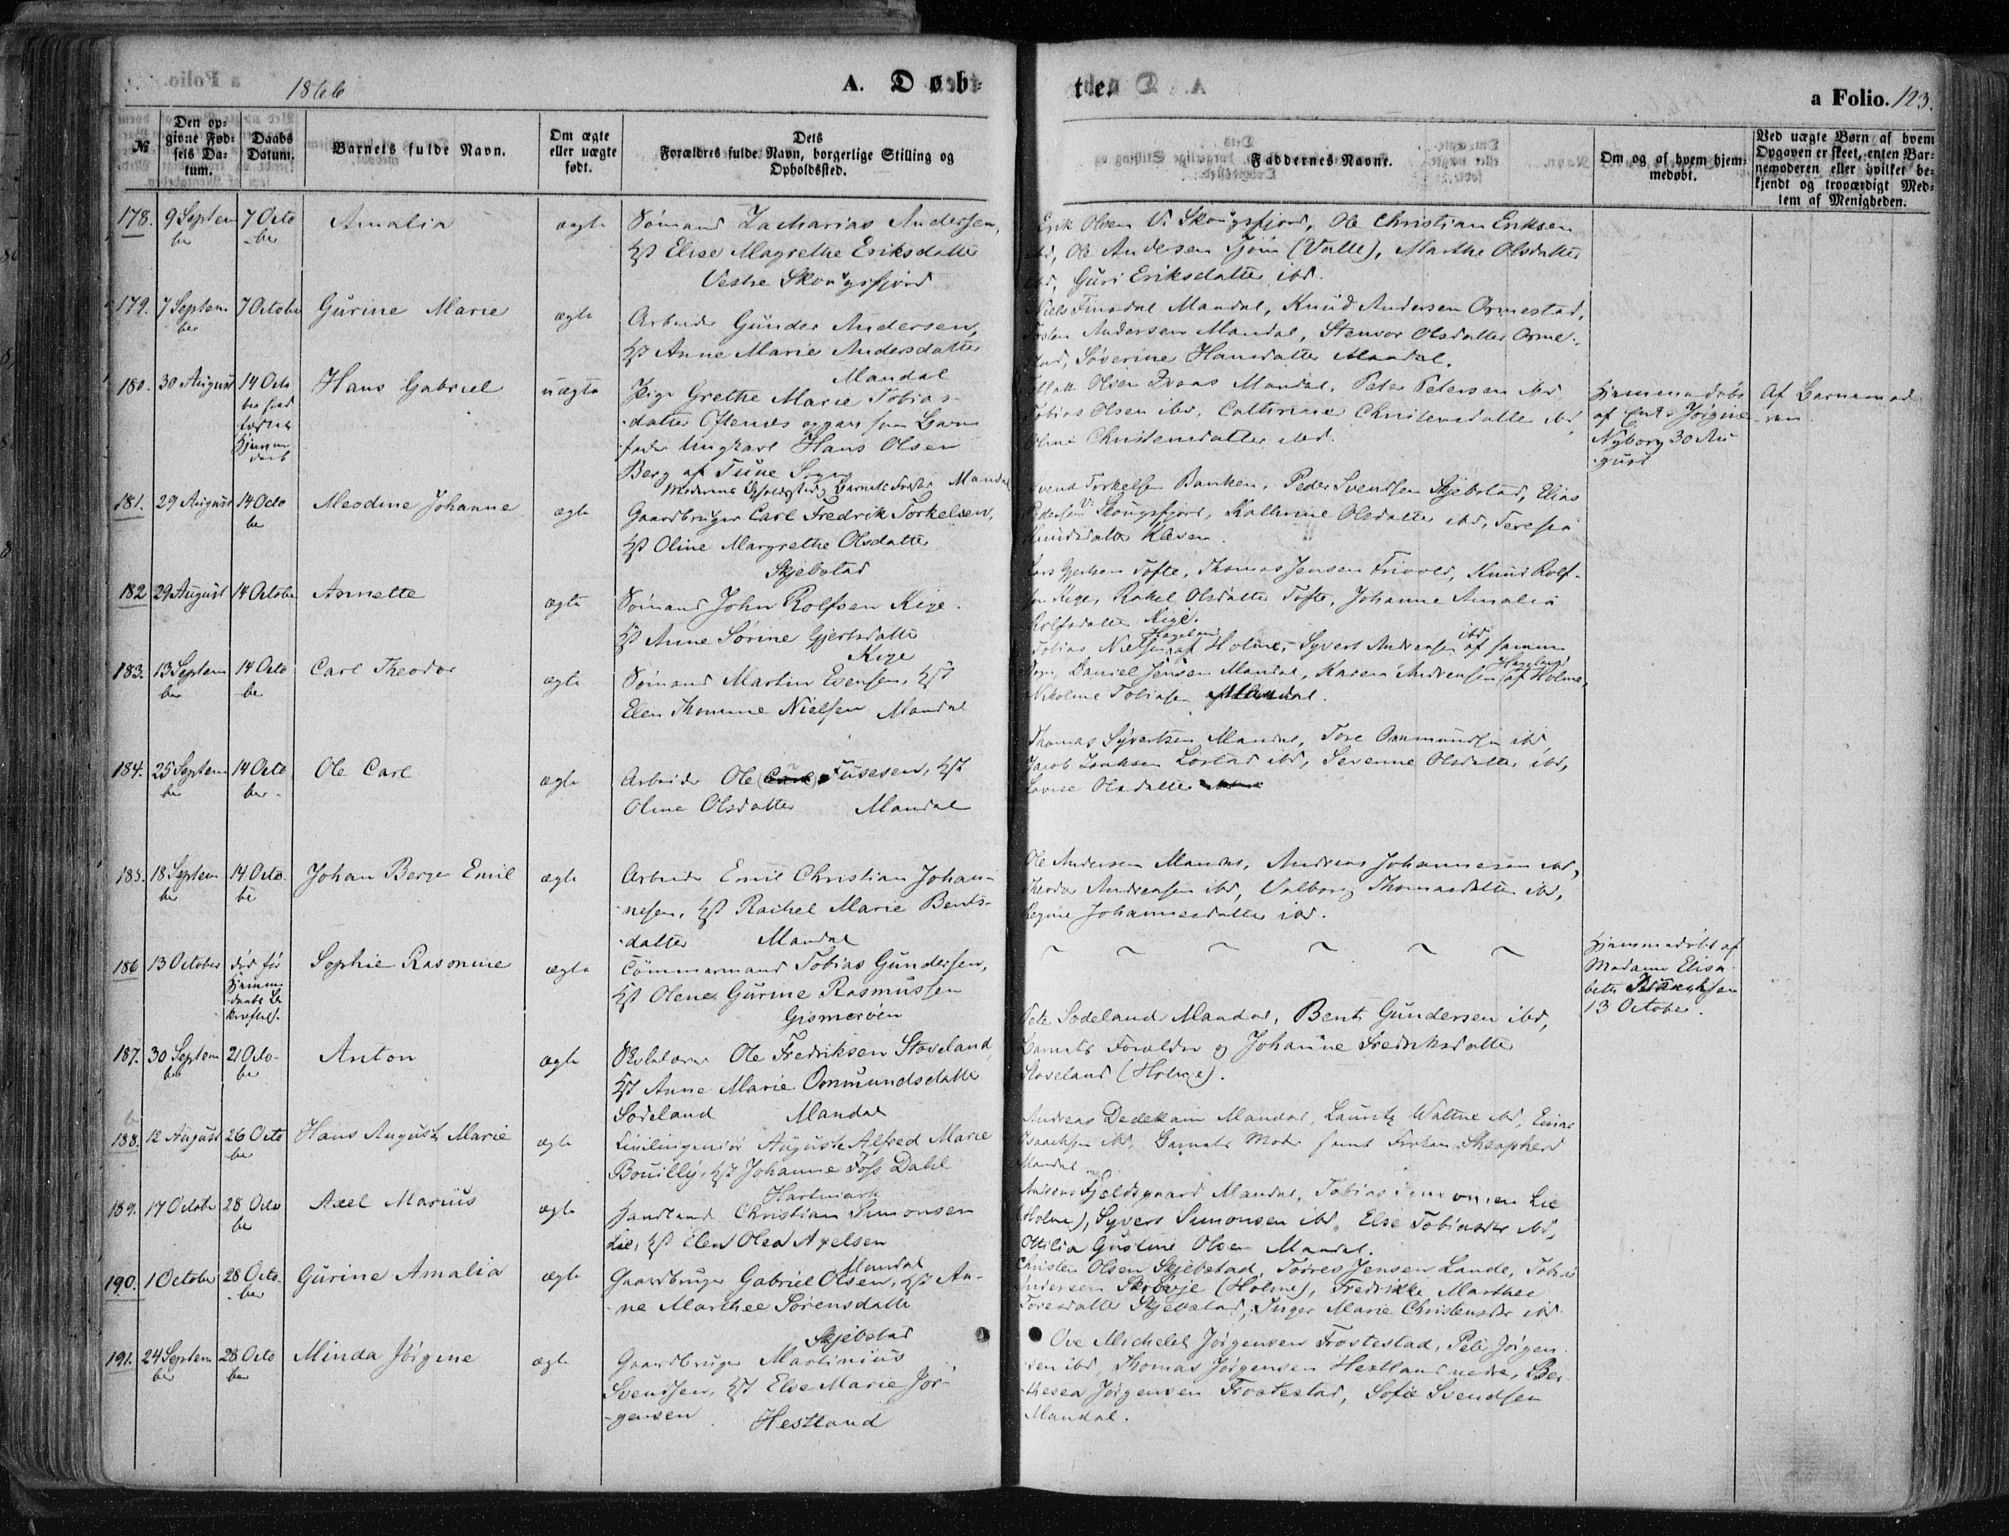 1866
A. Døb-
te.
a Folio. 123.
№
Den op-
givne Fød-
sels Da-
tum.
Daabs
Datum.
Barnets fulde Navn.
Om ægte
eller uægte
født.
Dets
Forældres fulde Navn, borgerlige Stilling og
Opholdssted.
Faddernes Navne.
Om og af hvem hjem-
medøbt.
Ved uægte Børn af hvem
Opgaven er skeet, enten Bar-
nemoderen eller hvilket be-
kjendt og troværdigt Med-
lem af Menigheden.
178. 9 Septem 7 Octo Amalia ægte Sømand Zacharias Andersen,
ber ber Hst Elise Magrethe Eriksdatter
Vestre Skougsfjord
Erik Olsen V. Skougsfjord, Ole Christian Eriksen
ibd, Ole Andersen Tjøm (Valle), Marthe Olsdatter
ibd, Guri Eriksdatter ibd.
179. 7 Septem 7 October Gurine Marie ægte Arbeider Gunder Andersen,
ber Hst Anne Marie Andersdatter
Mandal
Niels Finsdal Mandal, Knud Andersen Ormestad,
Andersen Mandal, Stensor Olsdatter Orme-
stad, Søverine Hansdatter Mandal.
180. 30 August 14 Octo Hans Gabriel uægte Pige Grethe Marie Tobias-
datter Oftenes opgav som Barne
fader Ungkarl Hans Olsen
Berg af Tune Sogn
Moderens Opholdssted og Barnets Fødested Mandal
Olsen Mandal, Peter Petersen ibd
Tobias Olsen ibd, Cathrine Christensdatter ibd,
Christensdatter ibd.
Hjemmedøbt
af Jørgine
Nyborg 30 Au-
gust
Af Barnemod
ren
181. 29 August 14 Octo Meodine Johanne ægte Gaardbruger Carl Fredrik Torkelsen,
ber Hst Oline Margrethe Olsdatter
Skjebstad
Svend Torkelsen Banken, Peder Svendsen Skjebstad, Elias
Pedersen V. Skougsfjord, Kathrine Olsdatter ibd, Teresea
Knudsdatter Kleven.
182 29 August 14 October Annette ægte Sømand John Rolfsen Kige.
Hst Anne Sørine Gjertsdatter
Kige
Lars Gjertsen Tofte, Thomas Jensen Frivold, Knud Rolf-
sen Kige, Rakel Olsdatter Tofte, Johanne Amalia
Rolfsdatter Kige.
183. 13 Septem 14 Octo Carl Theodor ægte Sømand Martin Evensen, Hst
ber ber Elen Thomine Nielsen Mandal
Tobias Nielsen Hageland af Holme, Syvert Andreasen ibd af samme
Sogn, Daniel Jensen Mandal, Karen Andreasen Hageland af Holme,
Nikoline Tobiasen Mandal.
184. 25 Septem 14 Octo Ole Carl ægte Arbeider Ole Tusesen, Hst
ber ber. Oline Olsdatter Mandal
Thomas Syvertsen Mandal, Tore Ommundsen ibd,
Jacob Isaksen Lørstad ibd, Severine Olsdatter ibd,
Lovise Olsdatter
185. 18 Septem 14 Octo Johan Berger Emil ægte Arbeider Emil Christian Johan-
ber ber nesen, Hst Rachel Marie Bents-
datter Mandal
Ole Andersen Mandal, Andreas Johannesen ibd,
Theodor Andreassen ibd, Valborg Thomasdatter ibd,
Regine Johannesdatter ibd.
186 13 October død før Sophie Rasmine ægte Tømmermand Tobias Gundersen,
Hjemme
daabs Be
kræftels. Hst Olene Gurine Rasmussen
Gismerøen
Hjemmedøbt af
Madame Elisa
beth Isaachsen
13 October.
187. 30 Septem 21 Octo- Anton ægte Skolelærer Ole Fredriksen Støveland
ber ber Hst Anne Marie Ommundsdatter
Sodeland Mandal
Peter Sodeland Mandal, Bent Gundersen ibd,
Barnets Forældre og Johanne Fredriksdatter
Støveland (Holme).
188. 12 August 26 Octo Hans August Marie ægte Civilingeniør Auguste Alfred Marie
ber Bouilly, Hst Johanne Foss Dahl
Hartmark
Andreas Dedekam Mandal, Lauritz Wattne ibd,
Isaachsen ibd, Barnets Moder samt Frøken
Mandal
189. 17 October 28 Octo Axel Marius ægte Handlende Christian Simonsen
ber Lie, Hst Elen Olea Axelsen
Mandal
Andreas Fjeldsgaard Mandal, Tobias Lie
(Holme), Syvert Simonsen ibd, Else Tobiasdtr ibd,
Ottilia Gustine Olsen Mandal.
190. 1 October 28 Octo- Gurine Amalia ægte Gaardbruger Gabriel Olsen, Hst An-
ber ne Marthee Sørensdatter
Skjebstad
Christen Olsen Skjebstad, Torres Jensen Lande, Tobias
Andersen Skrøvje (Holme), Fredrikke Marthee
Toresdatter Skjebstad, Inger Marie Christensdtr ibd
191. 24 Septem 28 Octo Minda Jørgine ægte Gaardbruger Martinius
ber ber Svendsen, Hst Else Marie Jør-
gensen. Hestland
Ove Michelet Jørgensen Frøstestad, Peder Jørgen-
sen ibd, Thomas Jørgensen Hestland nedre, Ber-
thesea Jørgensen Frøstestad, Sofie Svendsen
Mandal.